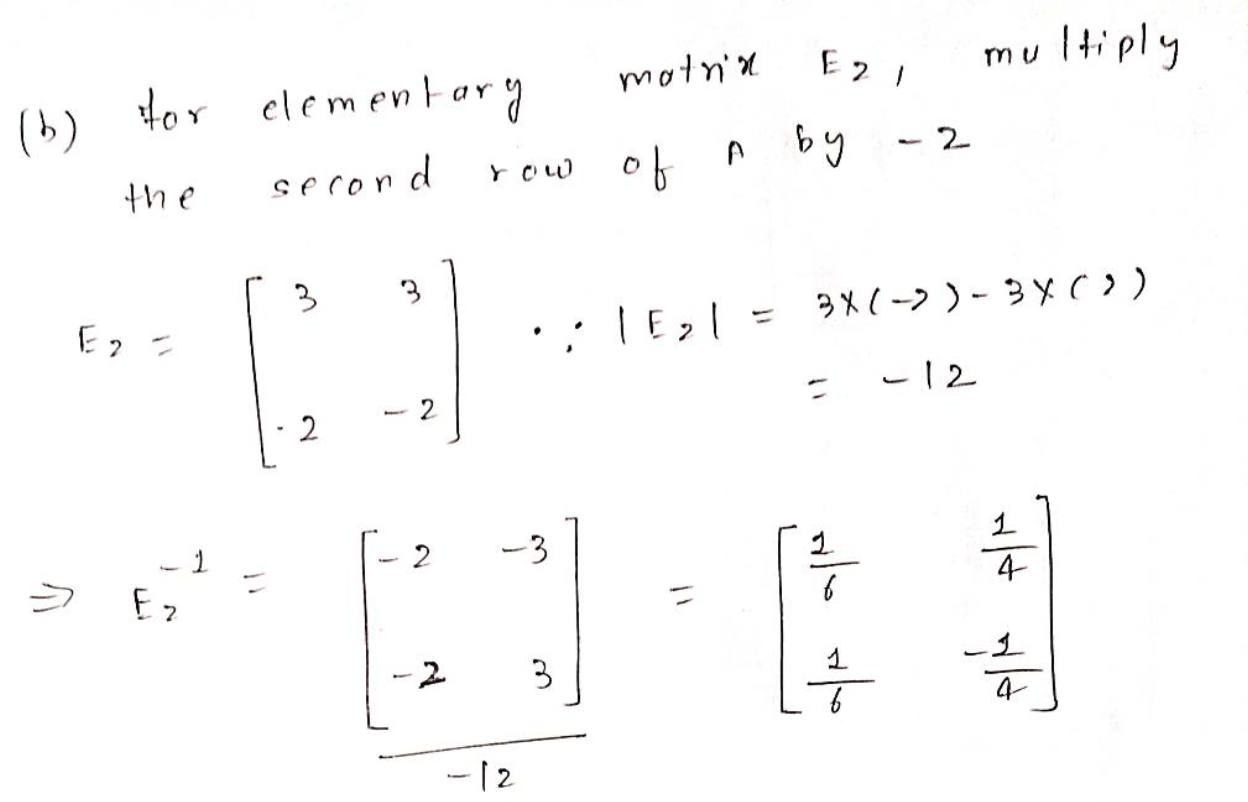 (b) for elementary matrix E2, multiply
the second row of A by -2
E2 = [ 3 3 ; 2 -2 ] ∵ |E2| = 3×(-2) - 3×(2)
= -12
⇒ E2^-1 = [ -2 -3 ; -2 3 ] / -12 = [ 1/6 1/4 ; 1/6 -1/4 ]